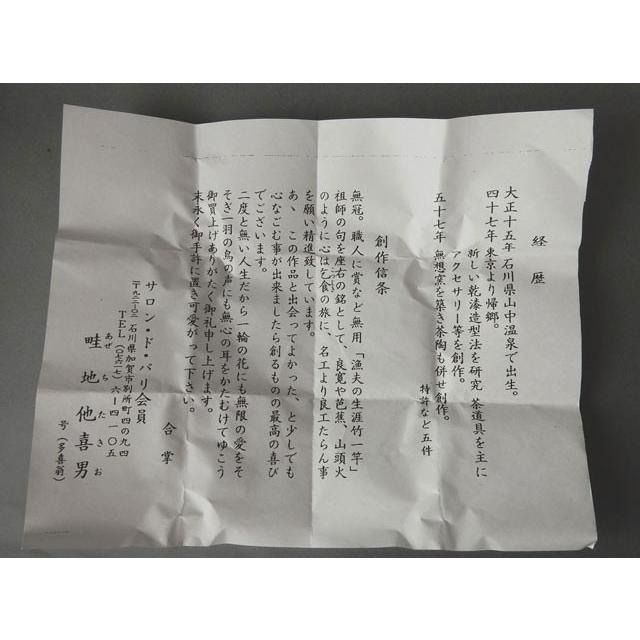 経歴
大正十五年 石川県山中温泉で出生。
四十七年 東京より帰郷。
新しい乾漆造型法を研究 茶道具を主に
アクセサリー等を創作。
五十七年 無想窯を築き茶陶も併せ創作。
特許など五件
創作信条
無冠。職人に賞など無用「漁夫の生涯竹一竿」
祖師の句を座右の銘として、良寛や芭蕉、山頭火
のように心は乞食の旅に、名工より良工たらん事
を願い精進致しています。
あゝ、この作品と出会ってよかった、と少しでも
心なごむ事が出来ましたら創るものの最高の喜び
でございます。
二度と無い人生だから一輪の花にも無限の愛をそ
そぎ一羽の鳥の声にも無心の耳をかたむけてゆこう
御買上げありがたく御礼申し上げます。
末永く御手許に置き可愛がって下さい。
合掌
サロン・ド・パリ会員
〒九二二-〇三 石川県加賀市別所町四の九四
TEL(〇七六一七)六-四一〇五
あぜちたきお
畦地他喜男
号(多喜翁)